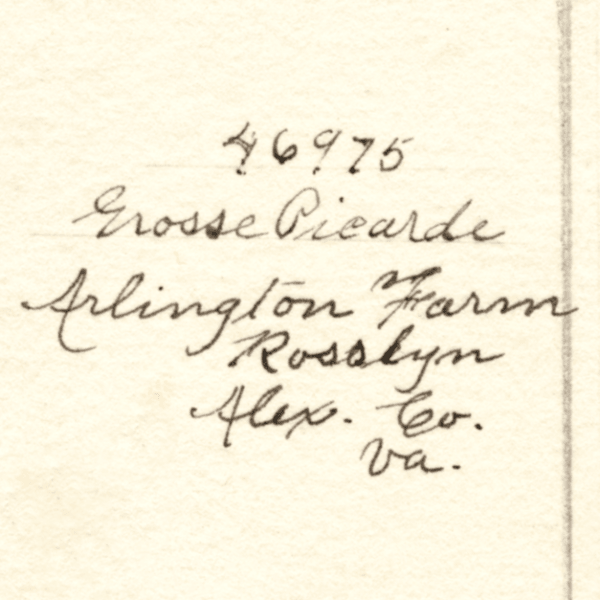 46975
Grosse Picarde
Arlington Farm
Rosslyn
Alex. Co.
Va.